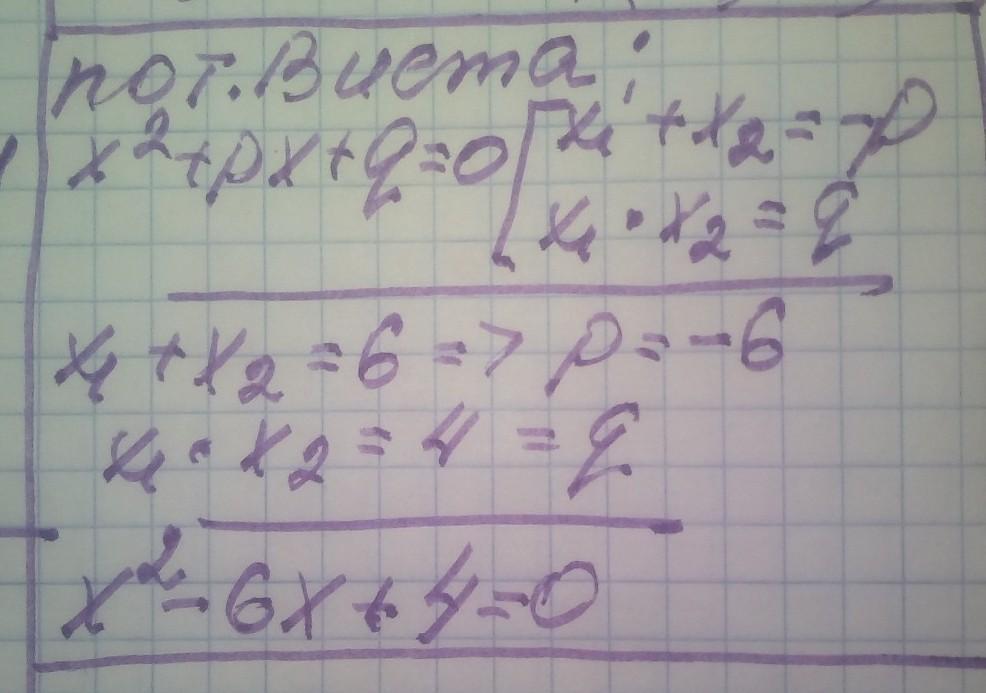 по т. Виета:
x²+px+q=0 [x₁+x₂=-p
x₁·x₂=q
x₁+x₂=6=>p=-6
x₁·x₂=4=q
x²-6x+4=0